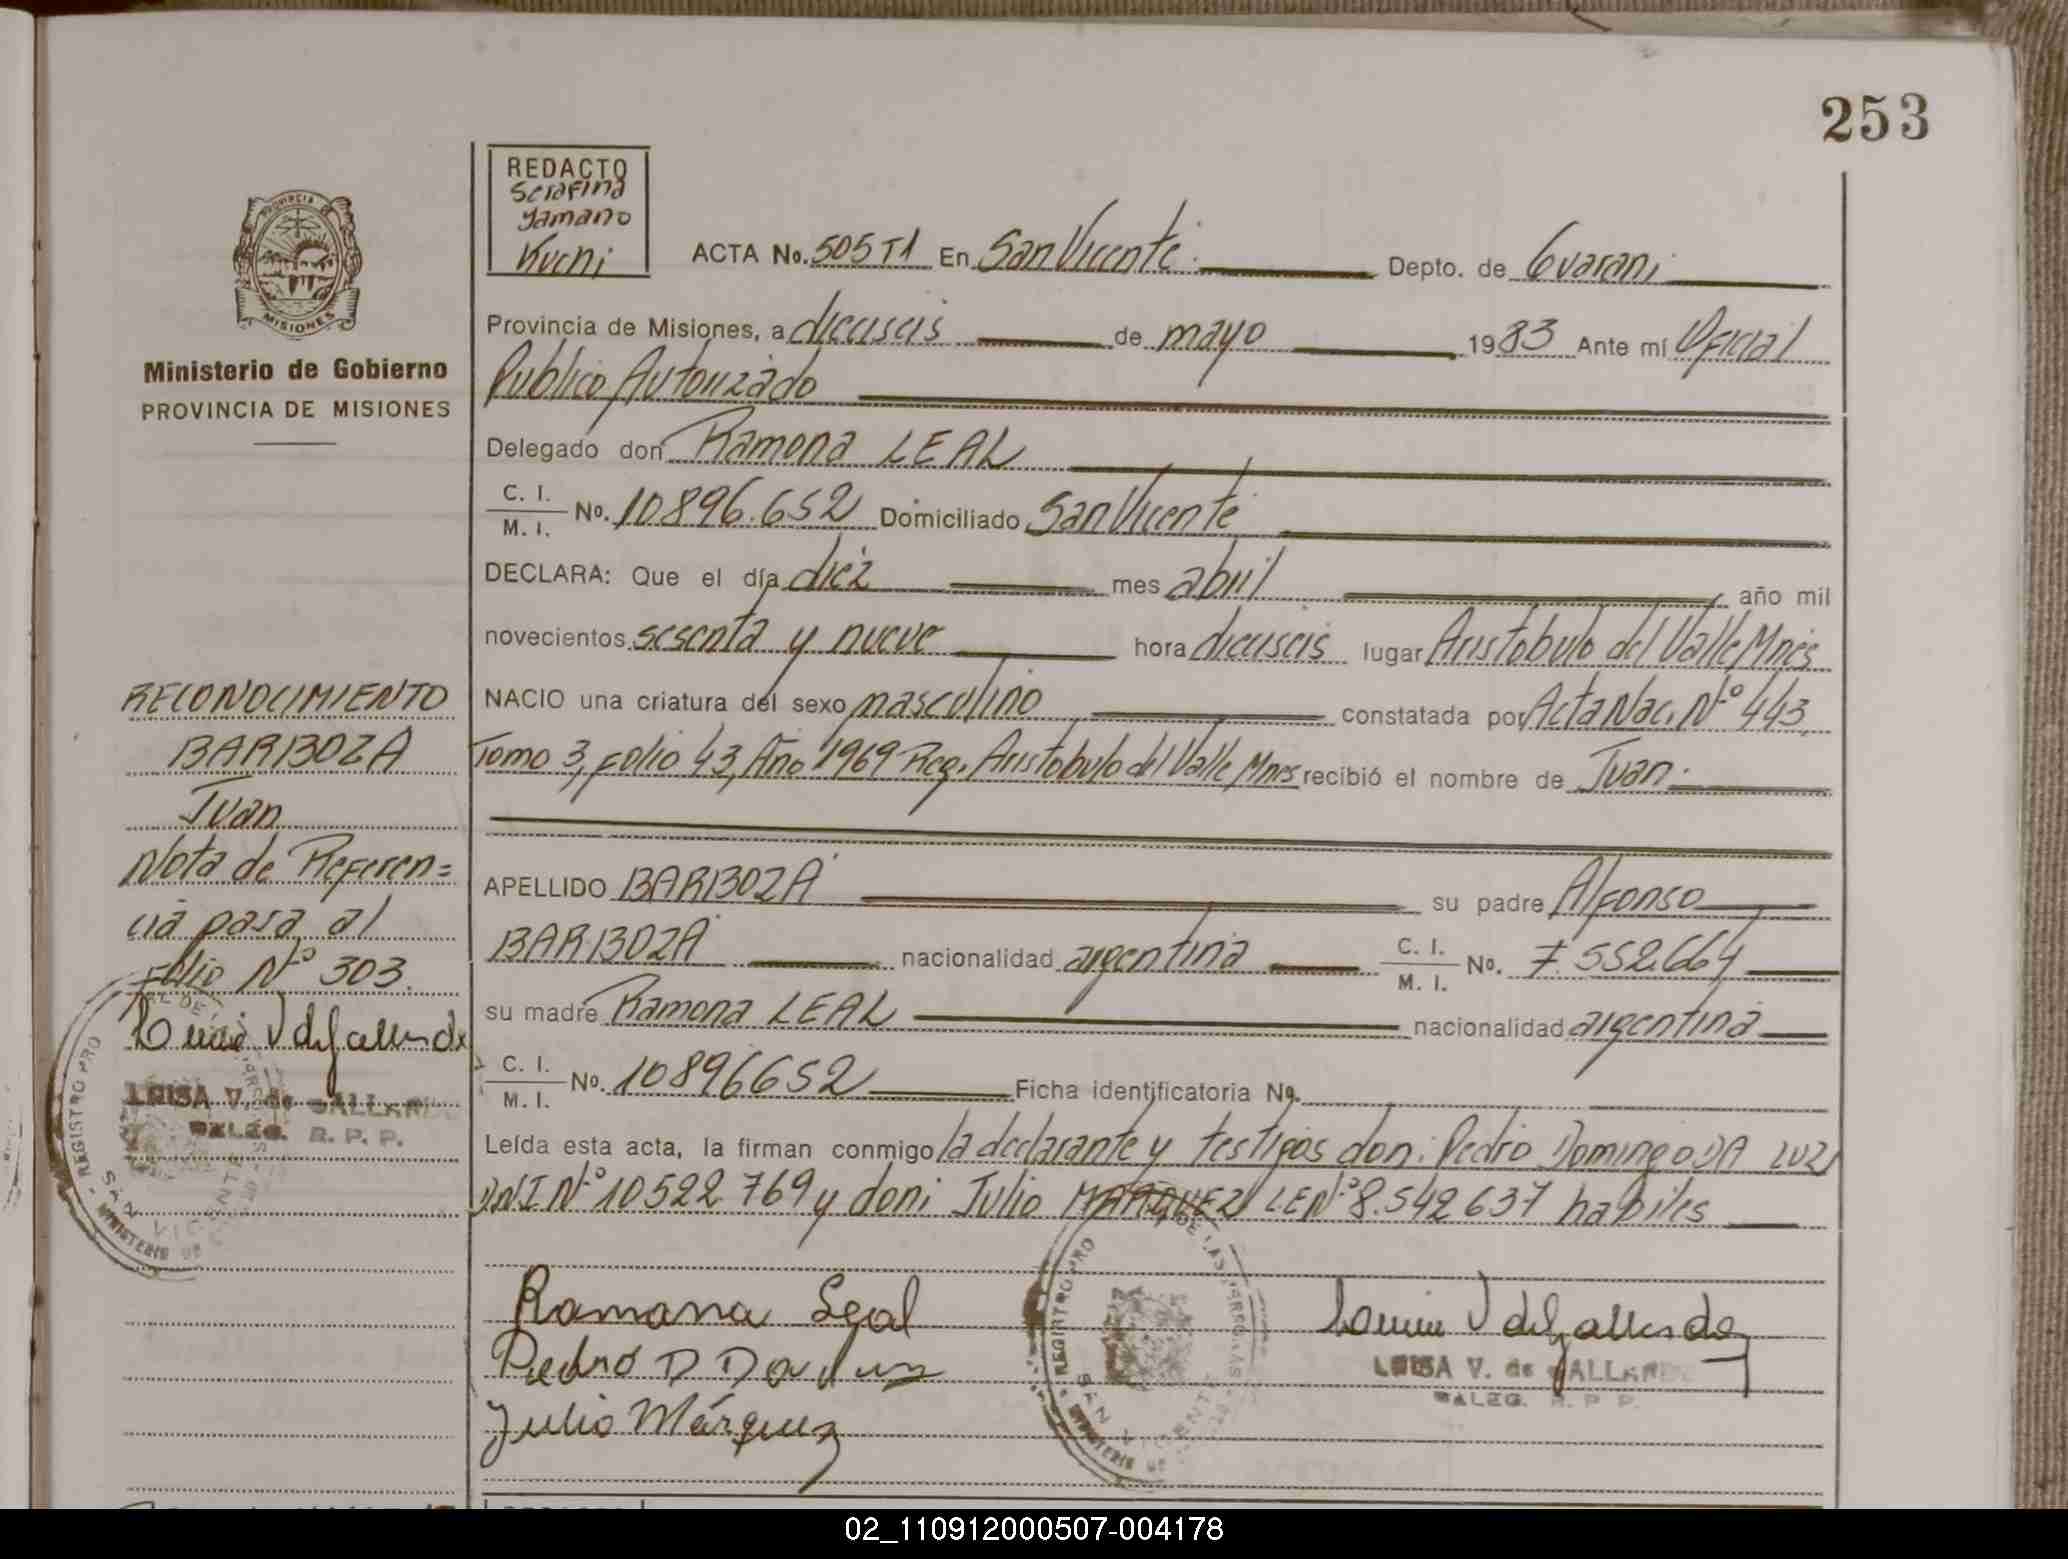 253
REDACTO
Serafina
Yamano
Kueni
PROVINCIA DE
MISIONES
Ministerio de Gobierno
PROVINCIA DE MISIONES
ACTA No. 505 T1 En San Vicente. Depto. de Guarani
Provincia de Misiones, a dieciseis de mayo 1983 Ante mí Oficial
Publico Autorizado
Delegado don Ramona LEAL
C. I.
M. I. No. 10896.652 Domiciliado San Vicente
DECLARA: Que el día diez mes abril año mil
novecientos sesenta y nueve hora dieciseis lugar Aristobulo del Valle Mnes
NACIO una criatura del sexo masculino constatada por Acta Nac. Nº 443,
Tomo 3, Folio 43, Año 1969 Reg. Aristobulo del Valle, Mnes recibió el nombre de Juan.
APELLIDO BARBOZA su padre Alfonso
BARBOZA nacionalidad argentina C. I.
M. I. No. 7.552.664
su madre Ramona LEAL nacionalidad argentina
C. I.
M. I. No. 10896652 Ficha identificatoria No.
Leída esta acta, la firman conmigo la declarante y testigos don: Pedro Domingo DA LUZ
DNI Nº 10522769 y don: Julio MARQUEZ LE Nº 8.542637 habiles
Ramona Leal
Pedro D Da Luz
Julio Márquez
LUISA V. de GALLARDO
DELEG. R. P. P.
RECONOCIMIENTO
BARBOZA
Juan
Nota de Referen=
cia pasa al
Folio Nº 303.
LUISA V. de GALLARDO
DELEG. R. P. P.
REGISTRO PRO
SAN VICENTE
02_110912000507-004178